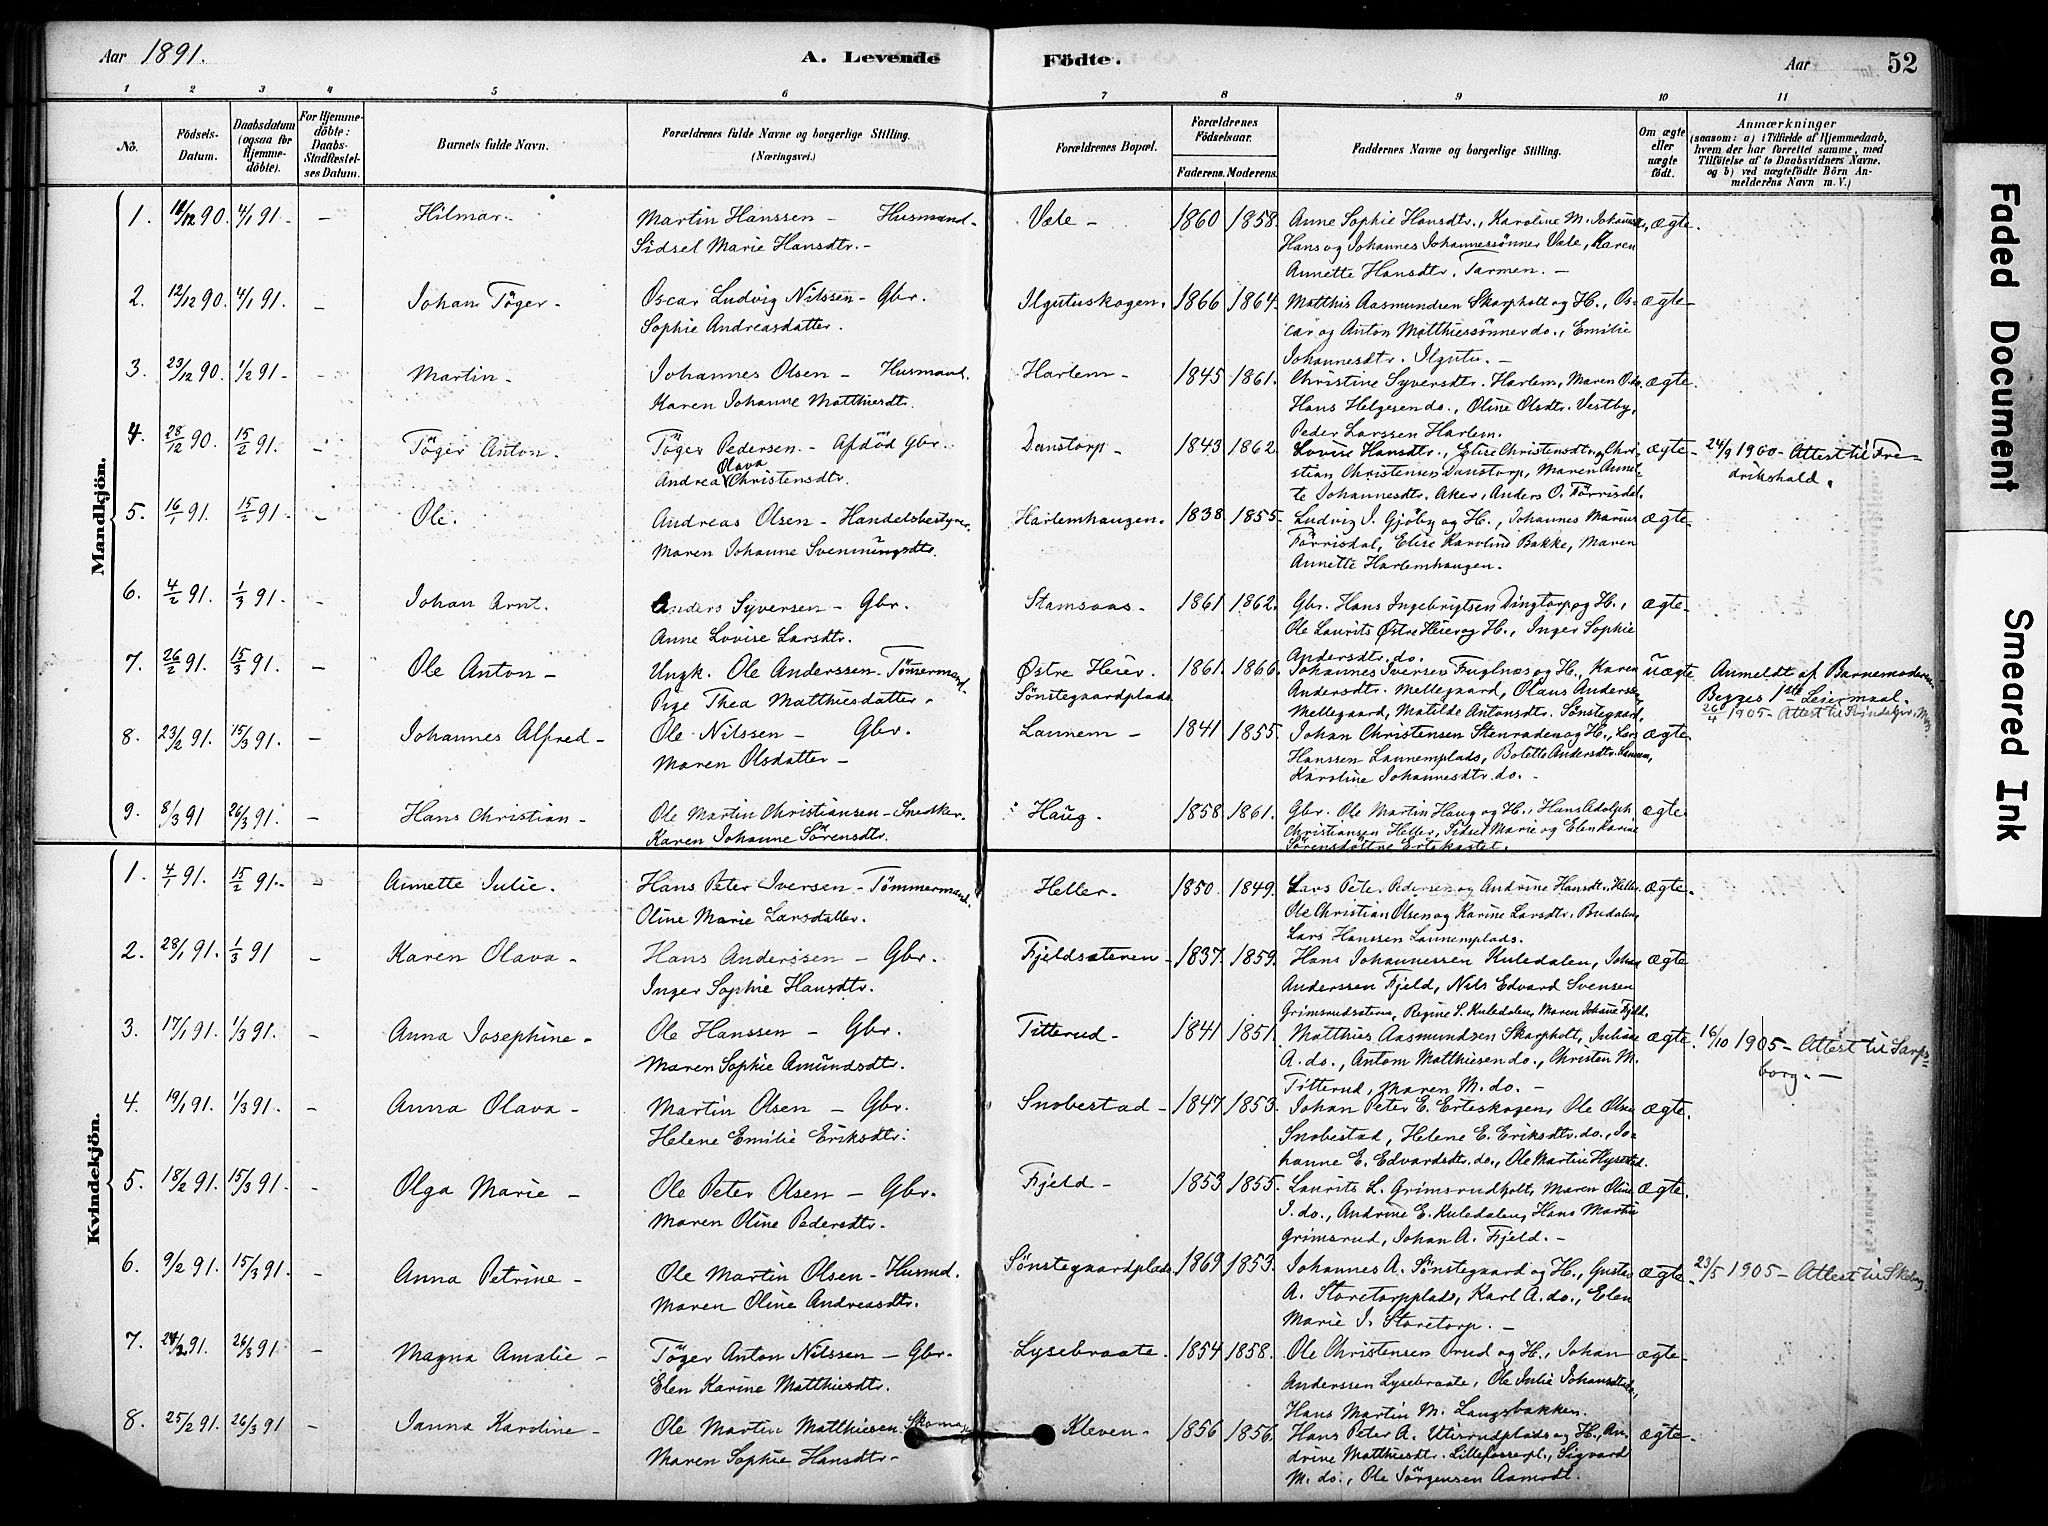 Aar 1891. A. Levende Födte. Aar 52
1 2 3 4 5 6 7 8 9 10 11
No. Födsels-Datum. Daabsdatum (ogsaa for Hjemmedöbte). For Hjemmedöbte: Daabs-Stadfæstelses Datum. Barnets fulde Navn. Forældrenes fulde Navne og borgerlige Stilling. (Næringsvei.) Forældrenes Bopæl. Forældrenes Födselsaar. Faderens. Moderens. Faddernes Navne og borgerlige Stilling. Om ægte eller uægte födt. Anmærkninger (saasom: a) i Tilfælde af Hjemmedaab, hvem der har forrettet samme, med Tilföielse af to Daabsvidners Navne. og b) ved uægtefödte Börn Anmelderens Navn m. V.)
Mandkjön.
1. /12 90. 4/1 91. - Hilmar. Martin Hanssen - Husmand. Vele - 1860 1858. Anne Sophie Hansdtr., Karoline M. Johannesd., ægte.
Sidsel Marie Hansdtr. - Hans og Johannes Johannessönner Vele, Karen
Annette Hansdtr. Tarmen. -
2. 12/12 90. 4/1 91. - Johan Töger - Oscar Ludvig Nilssen - Gbr. Ilgutuskogen. 1866 1864. Matthis Aasmundsen Skarpholt og H., Os- ægte -
Sophie Andreasdatter. car og Anton Matthiessönner do., Emilie
Johannesdtr. Ilgutu. -
3. 23/12 90. 1/2 91 - - Martin - Johannes Olsen - Husmand. Harlem - 1845 1861. Christine Syversdtr. Harlem, Maren O. do. ægte.
Karen Johanne Matthiesdtr. Hans Helgesen do., Oline Olsdtr. Vestby,
Peder Larssen Harlem.
4. 28/12 90. 15/2 91. - Töger Anton. Töger Pedersen - Afdöd Gbr. Danstorp - 1843 1862. Lovise Hansdtr., Elise Christensdtr. og Chri- ægte - 24/9 1900 - Attest til Fre-
Andrea Olava Christensdtr. stian Christensen Danstorp, Maren Annet- drikshald.
te Johannesdtr. Aker, Anders O. Förrisdal.
5. 16/1 91. 15/2 91. - Ole. Andreas Olsen - Handelsbestyrer. Harlemhaugen. 1838 1855. Ludvig J. Gjöby og H., Johannes Marius ægte -
Maren Johanne Svenningsdtr. Förrisdal, Elise Karoline Bakke, Maren
Annette Harlemhaugen.
6. 4/2 91. 1/3 91. - Johan Arnt. Anders Syversen - Gbr. Stamsaas - 1861 1862. Gbr. Hans Ingebrigtsen Dingtorp og H., ægte -
Anne Lovise Larsdtr. Ole Laurits Østre Heier og H., Inger Sophie
Andersdtr. do.
7. 26/2 91. 15/3 91. - Ole Anton - Ungk. Ole Anderssen - Tömermand. Østre Heier. 1861. 1866. Johannes Iversen Fuglnæs og H., Karen uægte Anmeldt af Barnemoderen.
Pige Thea Matthiesdatter - Sönstegaardplads. Andersdtr. Mellegaard, Olaus Andersen Begges 1ste Leiermaal.
Mellegaard, Matilde Antonsdtr. Sönstegaard. 26/4 1905 - Attest til
8. 23/2 91. 15/3 91. - Johannes Alfred - Ole Nilssen - Gbr. Launem - 1841 1855. Johan Christensen Stenraden og H., Lars ægte
Maren Olsdatter - Hanssen Launemplads, Bolette Andersdtr. Launem,
Karoline Johannesdtr. do. -
9. 8/3 91 26/3 91. - Hans Christian - Ole Martin Christiansen - Snedker. Haug. 1858 1861. Gbr. Ole Martin Haug og H., Hans Adolph ægte
Karen Johanne Sörensdtr. Christiansen Heller, Sidsel Marie og Elen Karine
Sörensdöttre Ertekastet.
Kvindekjön.
1. 4/1 91. 15/2 91. - Annette Julie. Hans Peter Iversen - Tömmermand. Heller. 1850. 1849. Lars Peter Pedersen og Andrine Hansdtr. Heller ægte.
Oline Marie Larsdatter. Ole Christian Olsen og Karine Larsdtr. Budalen,
Lars Hanssen Launemplads.
2. 28/1 91. 1/3 91 - Karen Olava - Hans Anderssen - Gbr. Fjeldsæteren - 1837. 1859. Hans Johannessen Kuledalen, Johan ægte
Inger Sophie Hansdtr. Anderssen Fjeld, Nils Edvard Svensen
Grimsrudsætern, Regine S. Kuledalen, Maren Johanne Fjeld.
3. 17/1 91. 1/3 91. - Anna Josephine - Ole Hanssen - Gbr. Titterud - 1841 1851. Matthias Aasmundsen Skarpholt, Juliane ægte. 16/10 1905 - Attest til Sarps-
Maren Sophie Amundsdtr. A. do., Antom Matthiesen do., Christen M. borg. -
Titterud, Maren M. do. -
4. 19/1 91. 1/3 91. - Anna Olava - Martin Olsen - Gbr. Snobestad - 1847 1853. Johan Peter E. Erteskogen, Ole Olsen ægte.
Helene Emilie Eriksdtr. Snobestad, Helene E. Eriksdtr. do., Jo-
hanne E. Edvardsdtr. do., Ole Martin Hysestad.
5. 18/2 91. 15/3 91. - Olga Marie - Ole Peter Olsen - Gbr. Fjeld - 1853 1855. Laurits L. Grimsrudholt, Maren Oline ægte.
Maren Oline Pedersdtr. I. do., Andrine E. Kuledalen, Hans Martin
Grimsrud, Johan A. Fjeld. -
6. 9/2 91. 15/3 91. - Anna Petrine - Ole Martin Olsen - Husmd. Sönstegaardplads. 1869 1853. Johannes A. Sönstegaard og H., Gustav ægte. 23/5 1905 - Attest til
Maren Oline Andreasdtr. A. Storetorpplads, Karl A. do., Elen
Marie J. Storetorp. -
7. 24/2 91. 26/3 91. - Magna Amalie - Töger Anton Nilssen - Gbr. Lysebraate. 1854 1858. Ole Christensen Orud og H., Johan ægte -
Elen Karine Matthiesdtr. Anderssen Lysebraate, Ole Julie Johansdtr. do.,
Hans Martin M. Langsbakken.
8. 25/2 91. 26/3 91 - Janna Karoline - Ole Martin Matthiesen - Kleven - 1856 1856. Hans Peter A. Utisrudplads og H., An- ægte -
Maren Sophie Hansdtr - drine Matthiesdtr. Lillefosserpl., Sigvard
M. do., Ole Jörgensen Aamodt.
Faded Document
Smeared Ink